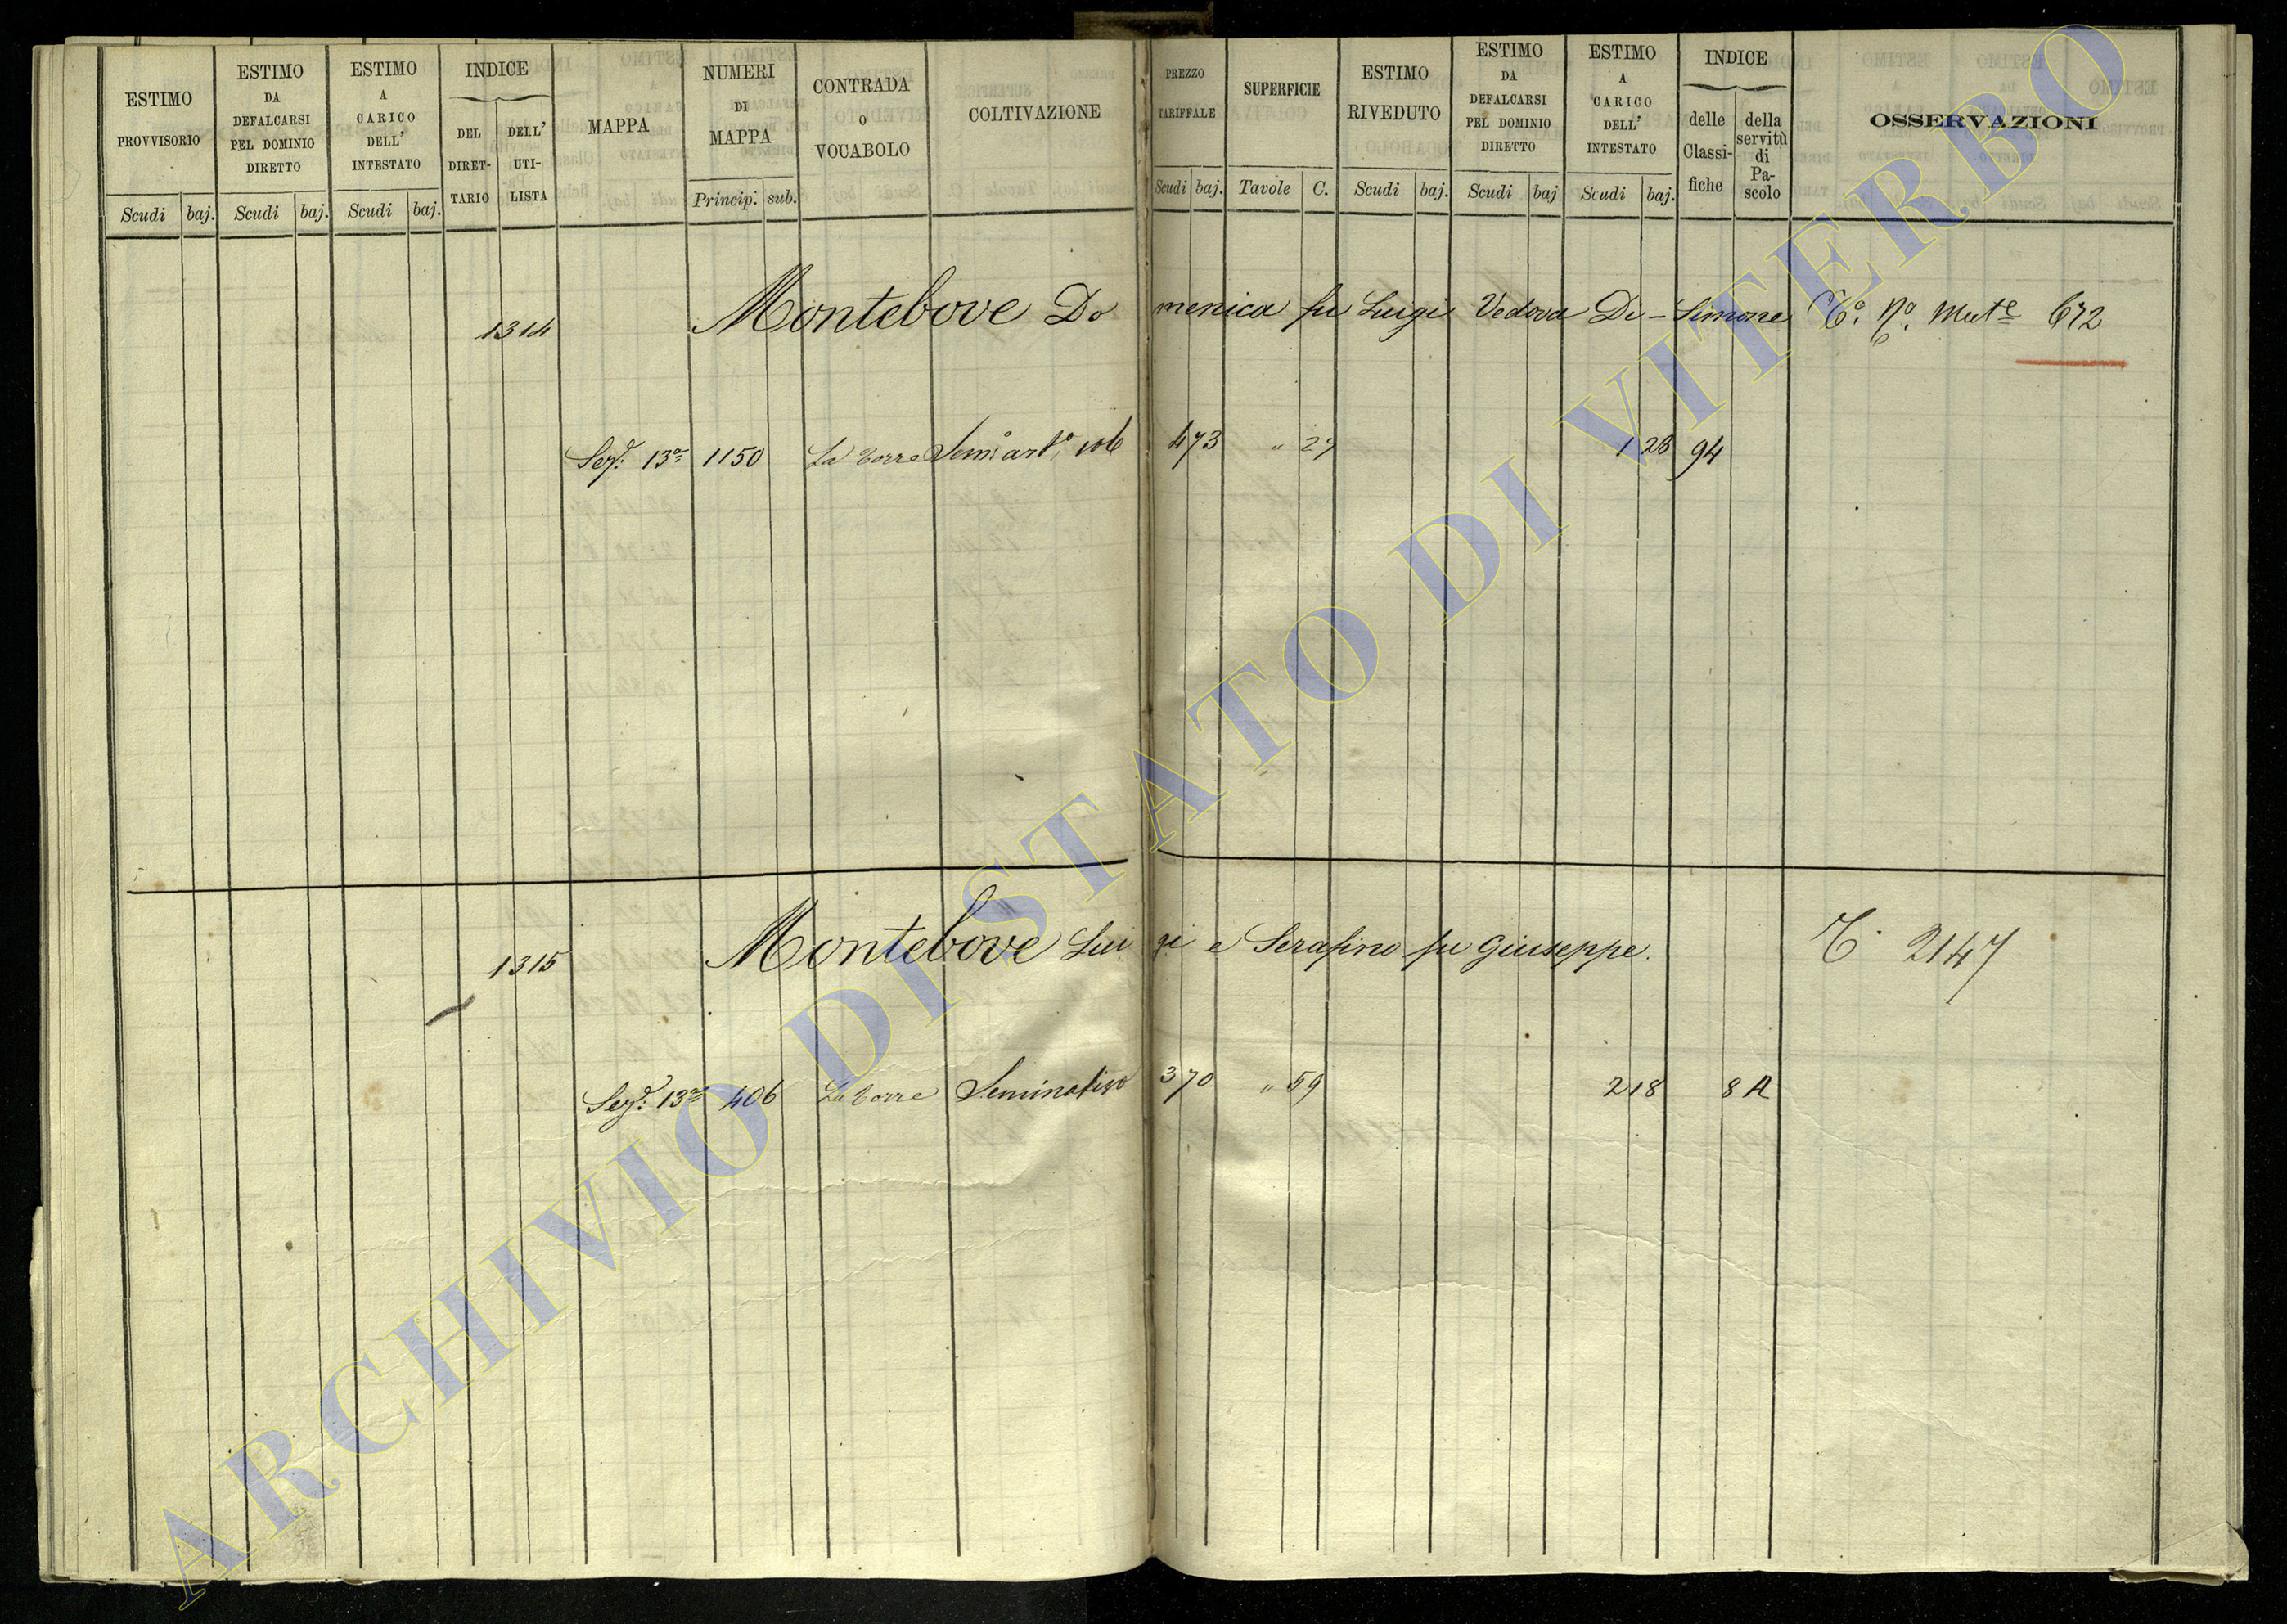 ESTIMO PROVVISORIO Scudi baj.
ESTIMO DA DEFALCARSI PEL DOMINIO DIRETTO Scudi baj.
ESTIMO A CARICO DELL' INTESTATO Scudi baj.
INDICE DEL DIRETTARIO DELL' UTILISTA
MAPPA
NUMERI DI MAPPA Princip. sub.
CONTRADA O VOCABOLO
COLTIVAZIONE
PREZZO TARIFFALE Scudi baj.
SUPERFICIE Tavole C.
ESTIMO RIVEDUTO Scudi baj.
ESTIMO DA DEFALCARSI PEL DOMINIO DIRETTO Scudi baj
ESTIMO A CARICO DELL' INTESTATO Scudi baj.
INDICE delle Classifiche della servitù di Pascolo
OSSERVAZIONI
1314 Montebove Domenica fu Luigi Vedova Di-Simone Cº. Nº. Mutº 672
Sez.e 13a 1150 La Torre 473 " 27 1 28 94
1315 Montebove Luigi e Serafino fu Giuseppe. C. 2147
Sez.e 13a 406 La Torre Seminativo 370 " 59 2 18 8 A
ARCHIVIO DI STATO DI VITERBO